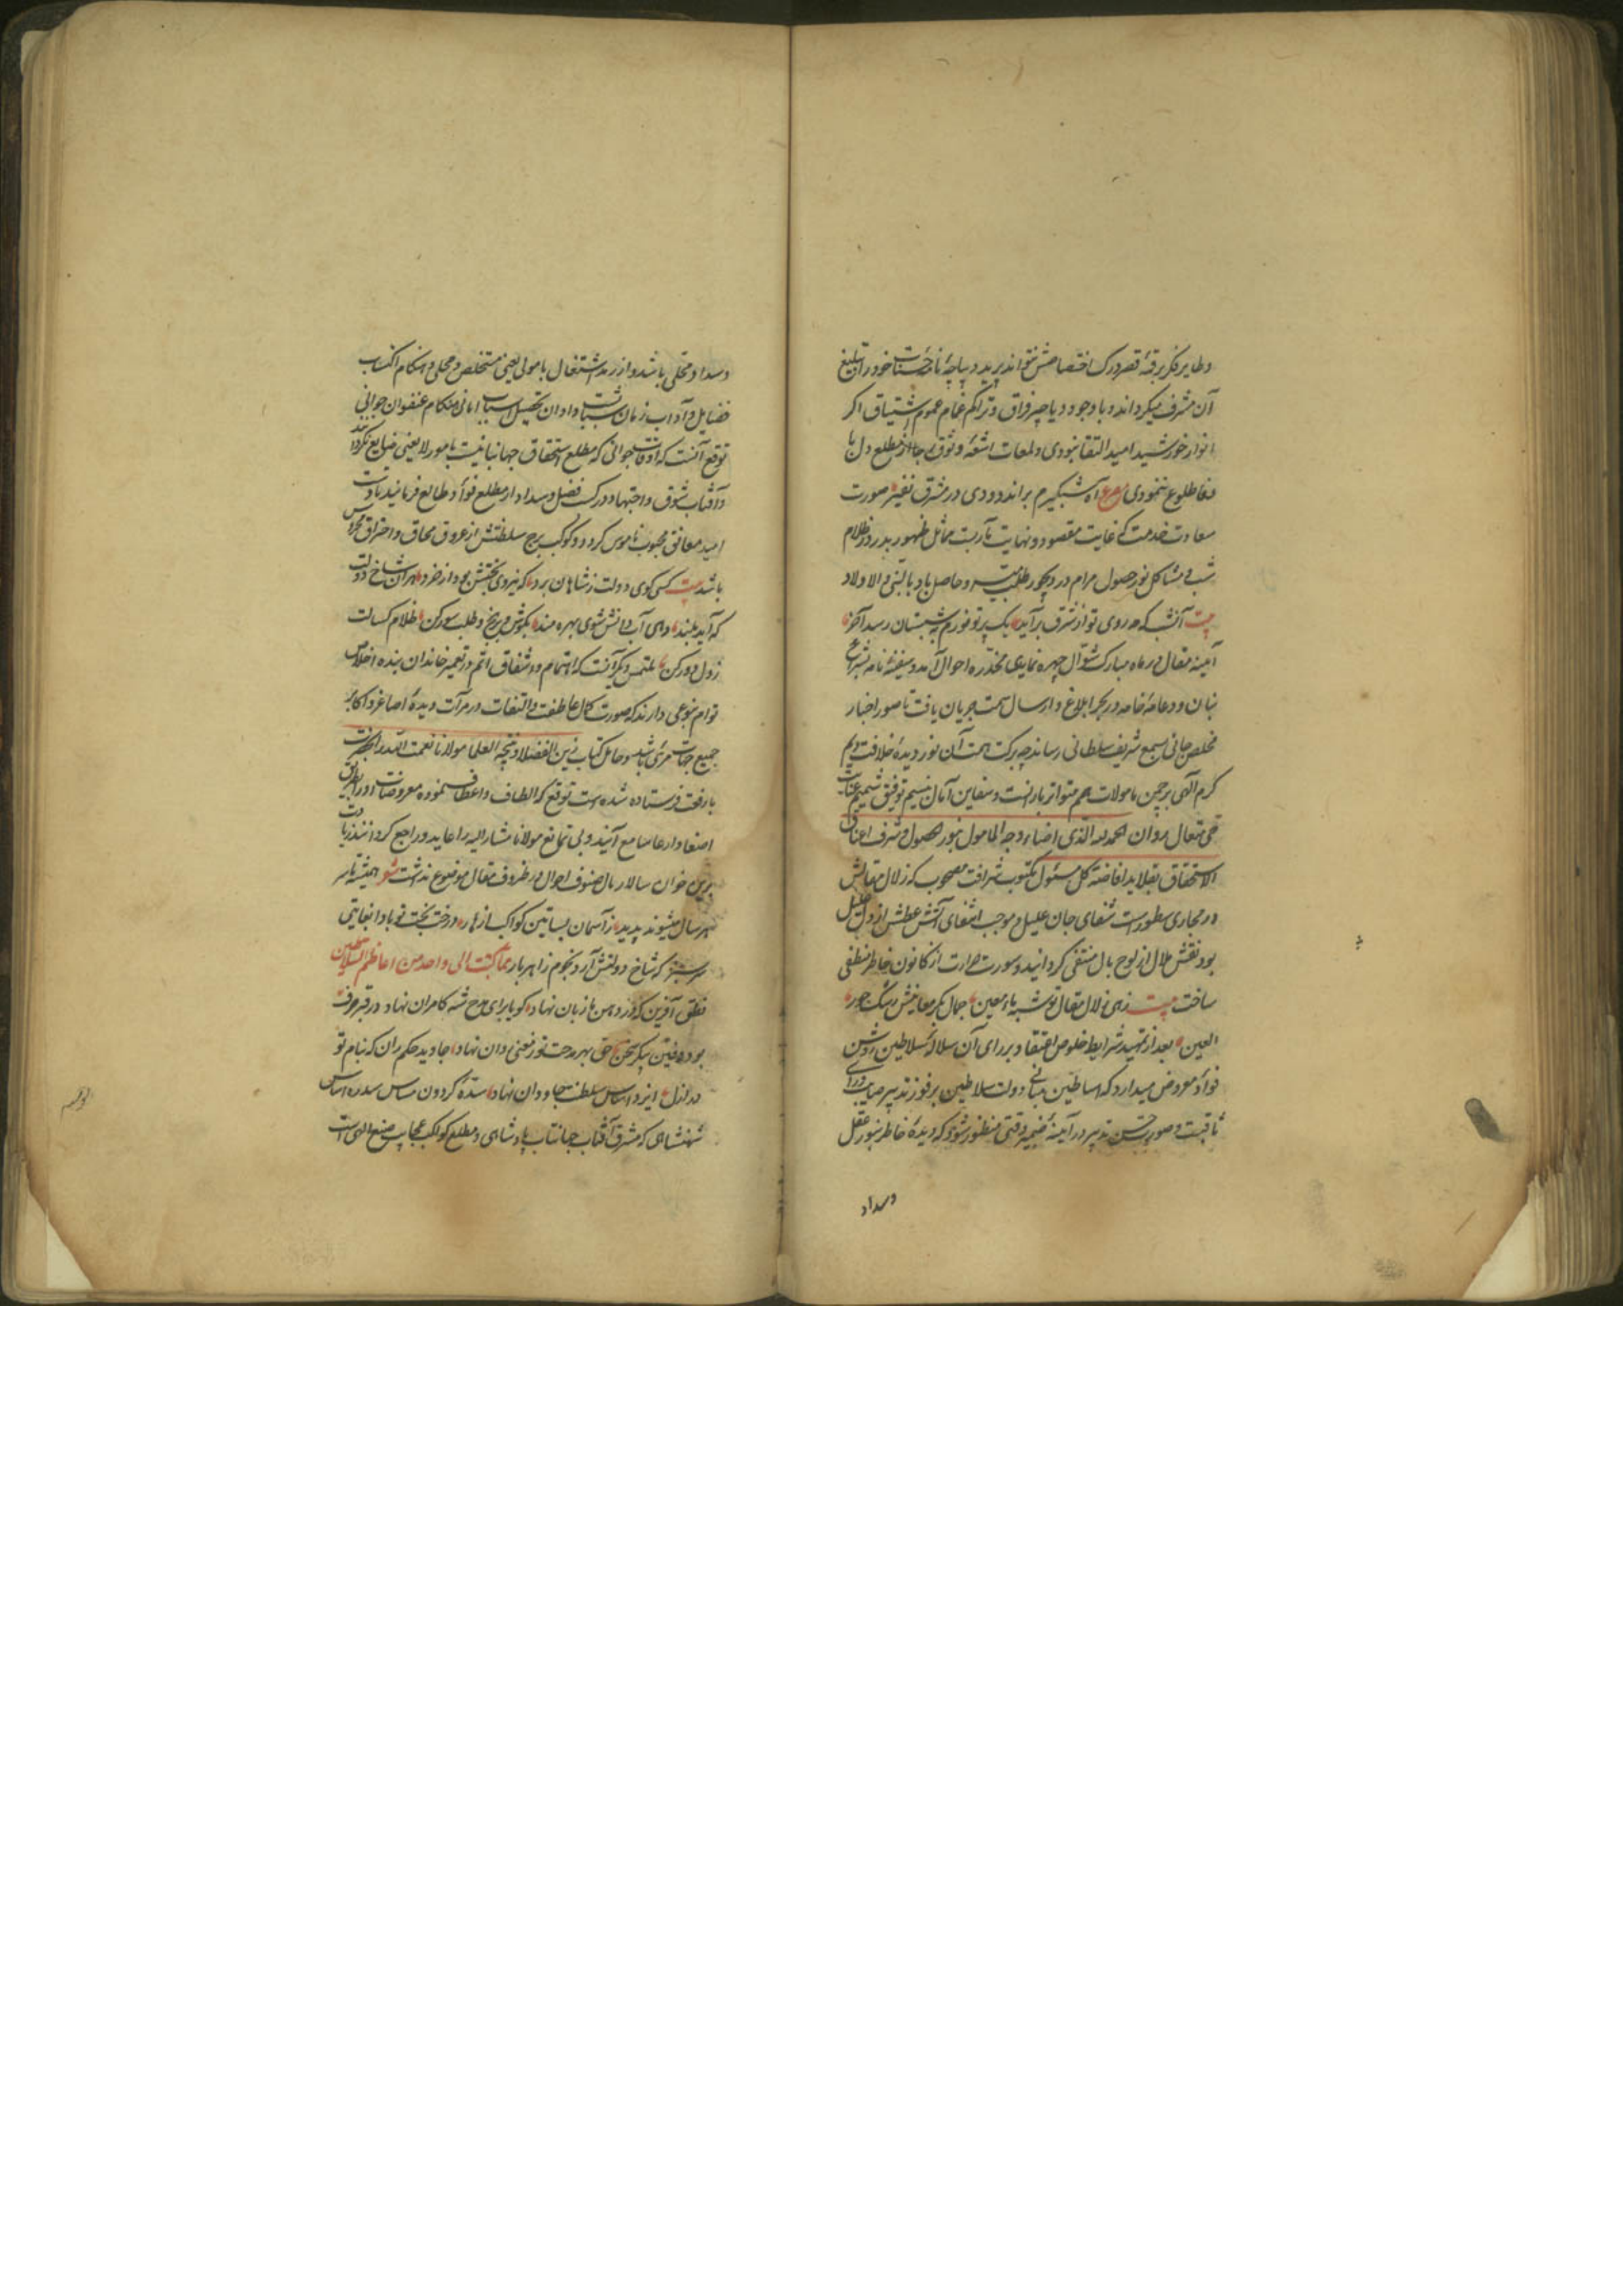 و طایر فکر برقهٔ قصر درک اختصاصش نتواند پرید دیباچهٔ تبلیغ
آن مشرف میکرداند و با وجود دیاجیر فراق و تراکم غمام عموم اشتیاق اکر
انوار خورشید امید التقا نبودی و لمعات اشعهٔ وثوق رجا از مطلع دل با
طلوع ننمودی مصرع آه شبگیرم براندودی در مشرق بقیر صورت
سعادت خدمت که غایت مقصود و نهایت مآربست مماثل ظهور بدر در ظلام
شب و مشاکل نور حصول مرام در دیجور طلب و حاصل باد بالنبی و الاولاد
بیت آن شب که مه روی تو از شرق برآید یک پرتو نورم به شبستان رسد آخر
آیینهٔ مقال در ماه مبارک شوال چهره نمای مخدرهٔ احوال آمد و سفینهٔ نامه بشراع
بنان و دعامهٔ خامه در بحر ابلاغ و ارسال سمت جریان یافت تا صور اخبار
مخلص جانی بسمع شریف سلطانی رساند چه ببرکت همت آن نور دیدهٔ خلافت دیم
کرم الهی بر چمن مأمولات همم متواتر بارانست و سفاین آمال بنسیم توفیق شمیم عنایت
حی متعال روان الحمد لله الذی اضاء وجه المامول بنور الحصول و شرف اعناق
الاستحقاق بقلاید افاضة کل مسئول مکتوب شرافت مصحوب که زلال مقالش
در مجاری سطورست شفای جان علیل و موجب انتفای آتش عطش از دل غلیل
بود نقش ملال از لوح بال منتفی کردانید و سورت حرارت از کانون خاطر منطفی
ساخت بیت زهی زلال مقال تو شبه ماء معین جمال بکر معانیش رشک حور
العین بعد از تمهید شرایط خلوص اعتقاد بر رای آن سلالهٔ سلاطین روشن
فؤاد معروض میدارد که اساطین مبانی دولت سلاطین برفور تدبیر صایب و رای
ثاقبست و صور حسن تدبیر در آیینهٔ ضمیر وقتی منظور شود که دیدهٔ خاطر بنور عقل
وسداد
وسداد محلی باشد و از رمد اشتغال بامور لا یعنی مستخلص و مجلی و هنکام اکتساب
فضایل و آداب زمان شبابست و اوان تحصیل اسباب امانی هنکام عنفوان جوانی
توقع آنست که اوقات جوانی که مطلع استحقاق جهانبانیست بامور لا یعنی ضایع نکردانند
و آفتاب شوق و اجتهاد در کسب فضل و سداد از مطلع فؤاد طالع فرمایند تا دست
امید معانق محبوب ناموس کردد و کوکب برج سلطنتش از عروق محاق و احتراق محروس
باشد بیت کسی کوی دولت ز شاهان برد که نیروی بختش بود از خرد هر آن شاخ دولت
که آید بلند ز آب دانش شوی بهره مند بکوش و برنج و طلب سور کن ظلام کسالت
ز دل دور کن ملتمس دیکر آنست که اهتمام و اشفاق اتم در تعمیر خاندان بنده اخلاص
توام بنوعی دارند که صورت کمال عاطفت و التفات در مرآت دیدهٔ اصاغر و اکابر
جمیع جهات مرئی باشد و حامل کتاب زین الفضلا و نتیجة العلما مولانا نعمت الله را بحضرت
با رفعت فرستاده شده است توقع که الطاف و اعطاف نموده معروضات او را بطریق
اصغا و ارعا سامع آیند و بی تمانع مولانا مشار الیه را عاید و راجع کردانند زیادت
برین خوان سالار بال صنوف احوال در ظروف مقال موضوع نداشت شعر همیشه تا سر
هر سال میشوند پدید ز آسمان بساتین کواکب ازهار درخت بخت تو بادا بغایتی
سرسبز که شاخ دولتش آرد نجوم زاهر بار مما کتبت الی واحد من اعاظم السلاطین
نطق آفرین که در دهن ما زبان نهاد کویا برای مدح شه کامران نهاد در قعر حرف
بود دفین پیکر سخن حق بهر مدحت تو ز معنی روان نهاد جاوید حکم ران که بنام تو
در ازل ایزد اساس سلطنت جاودان نهاد سدهٔ کردون مماس سدره اساس
شهنشاهی که مشرق آفتاب جهانتاب پادشاهی و مطلع کواکب عجایب صنع الهی است